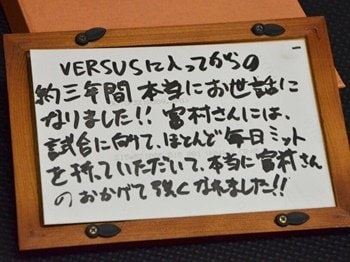 VERSUSに入ってからの
約三年間本当にお世話に
なりました!! 富村さんには、
試合に向けて、ほとんど毎日ミット
を持っていただいて、本当に富村さん
のおかげで強くなれました!!